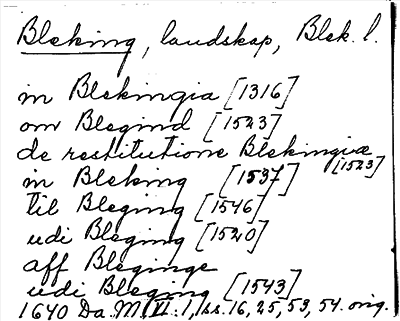 Bleking, landskap, Blek. l.
in Blekingia [1316]
om Blegind [1523]
de restitutione Blekingiæ [1523]
in Bleking [1537]
til Bleging [1546]
udi Bleging [1520]
aff Bleginge
udi Bleging [1543]
1640 Da. M. VI: 1, Iss. 16, 25, 53, 54. orig.